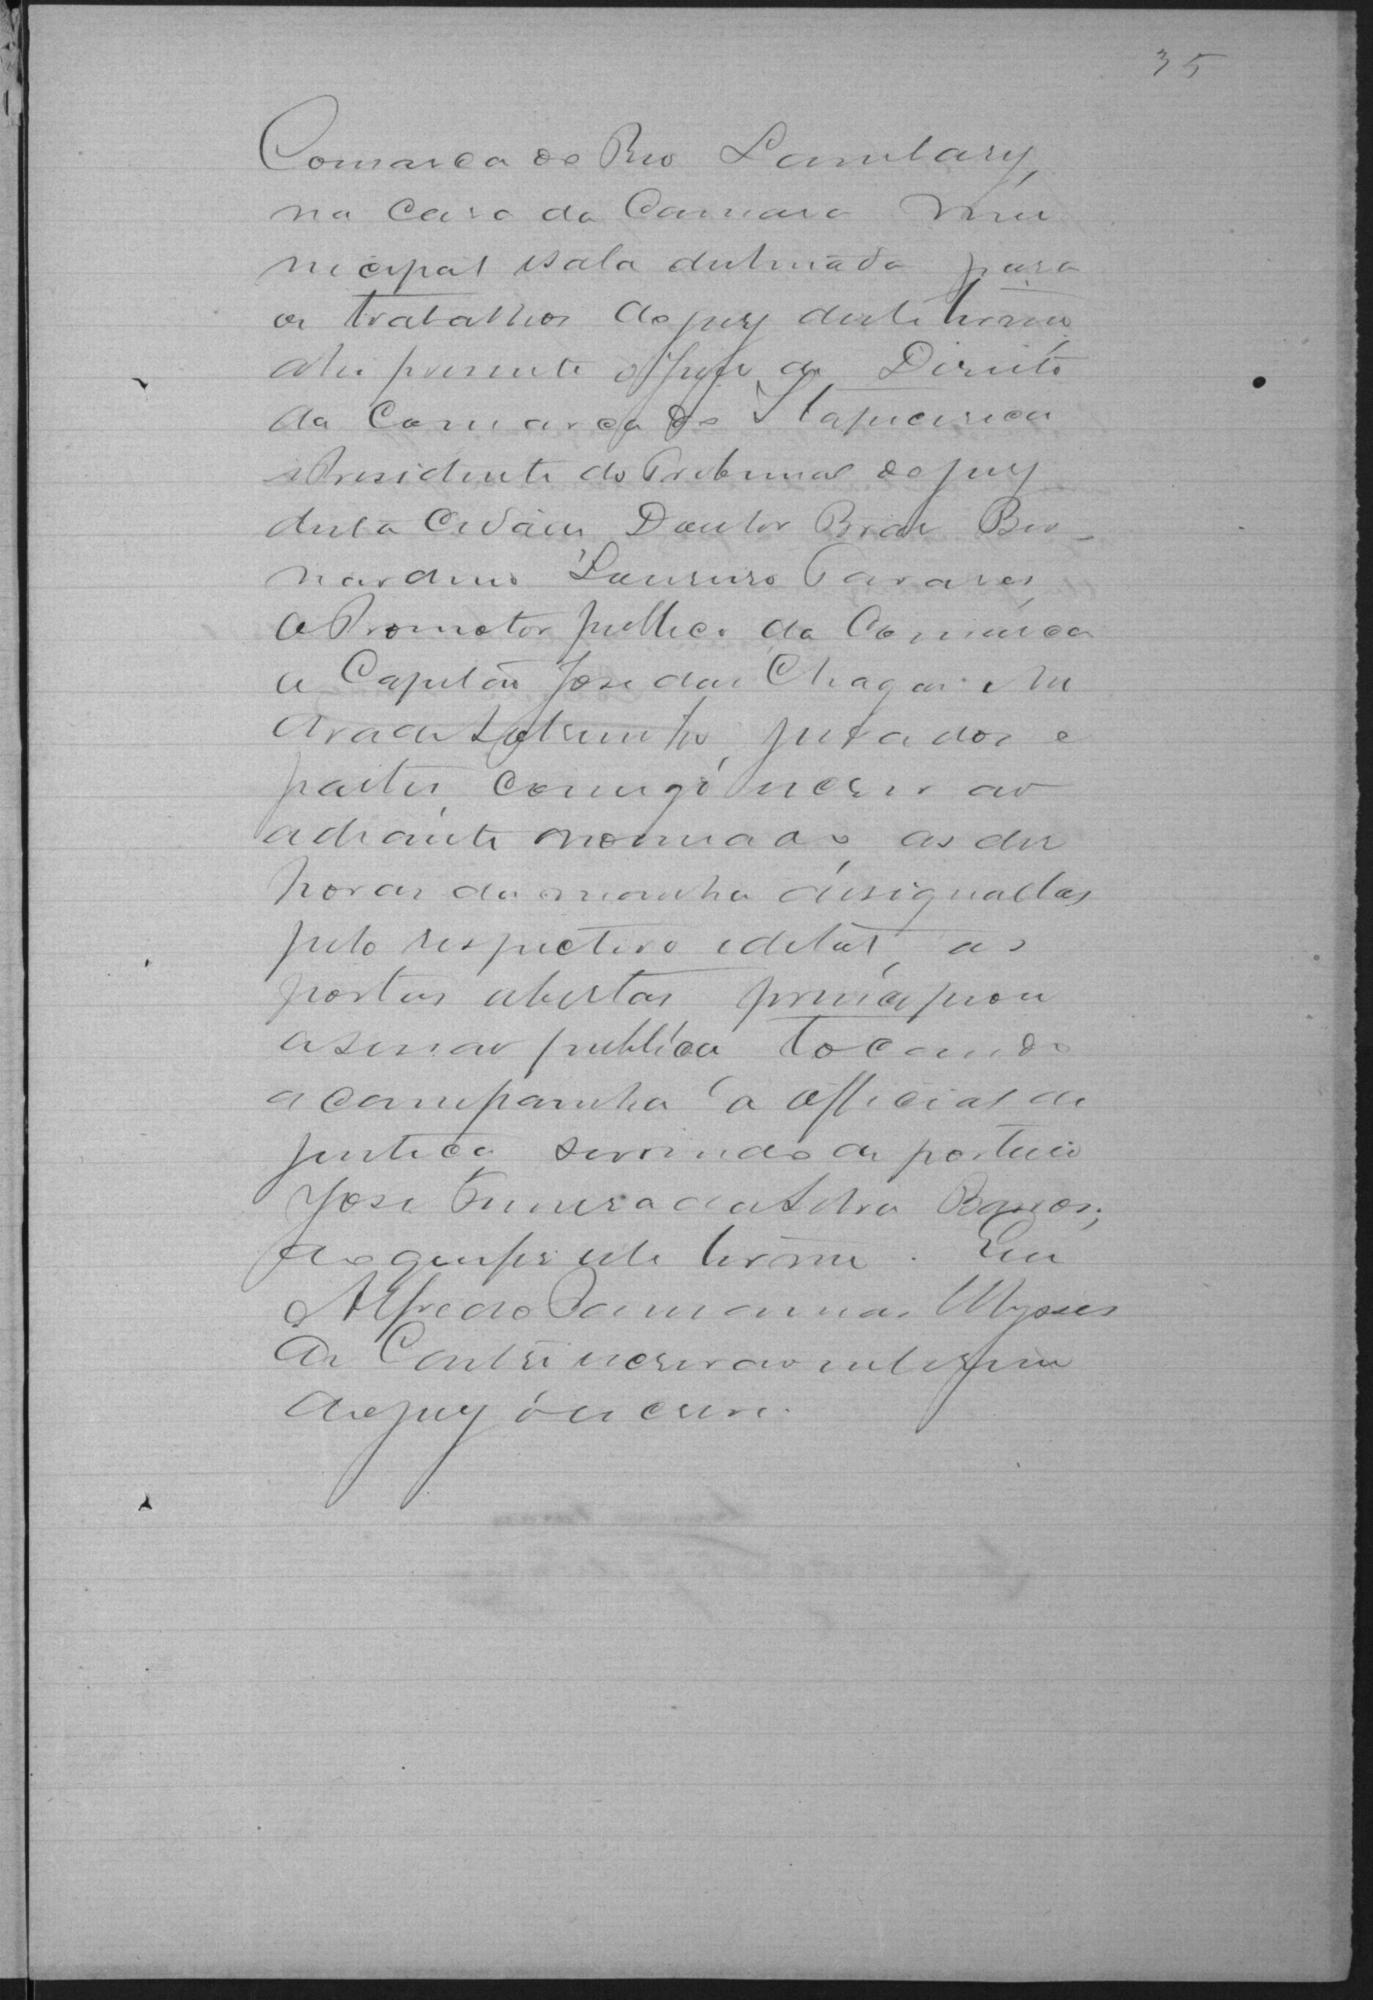 35
Comarca do Rio Lambary,
na Casa da Camara Mu
nicipal e sala destinada para
os trabalhos do jury deste termo
ahi presente o Juiz de Direito
da Comarca de Itapecirica
e Presidente do Tribunal do jury
desta Cidade Doutor Bras Ber-
nardino Loureiro Tavares,
o Promotor publico da Comarca
o Capitão Jose das Chagas
Andrade Sobrinho, jurados e
partes, comigo escrivão
adiante nomeado, as dez
horas da manhã designadas
pelo respectivo edital, as
portas abertas principiou
a sessão publica tocando
a campainha o official de
justiça servindo de porteiro
José da Silva Barros;
do que fiz este termo. Eu
Alfredo Ulysses
de Castro escrivão interino
do jury o escrevi.